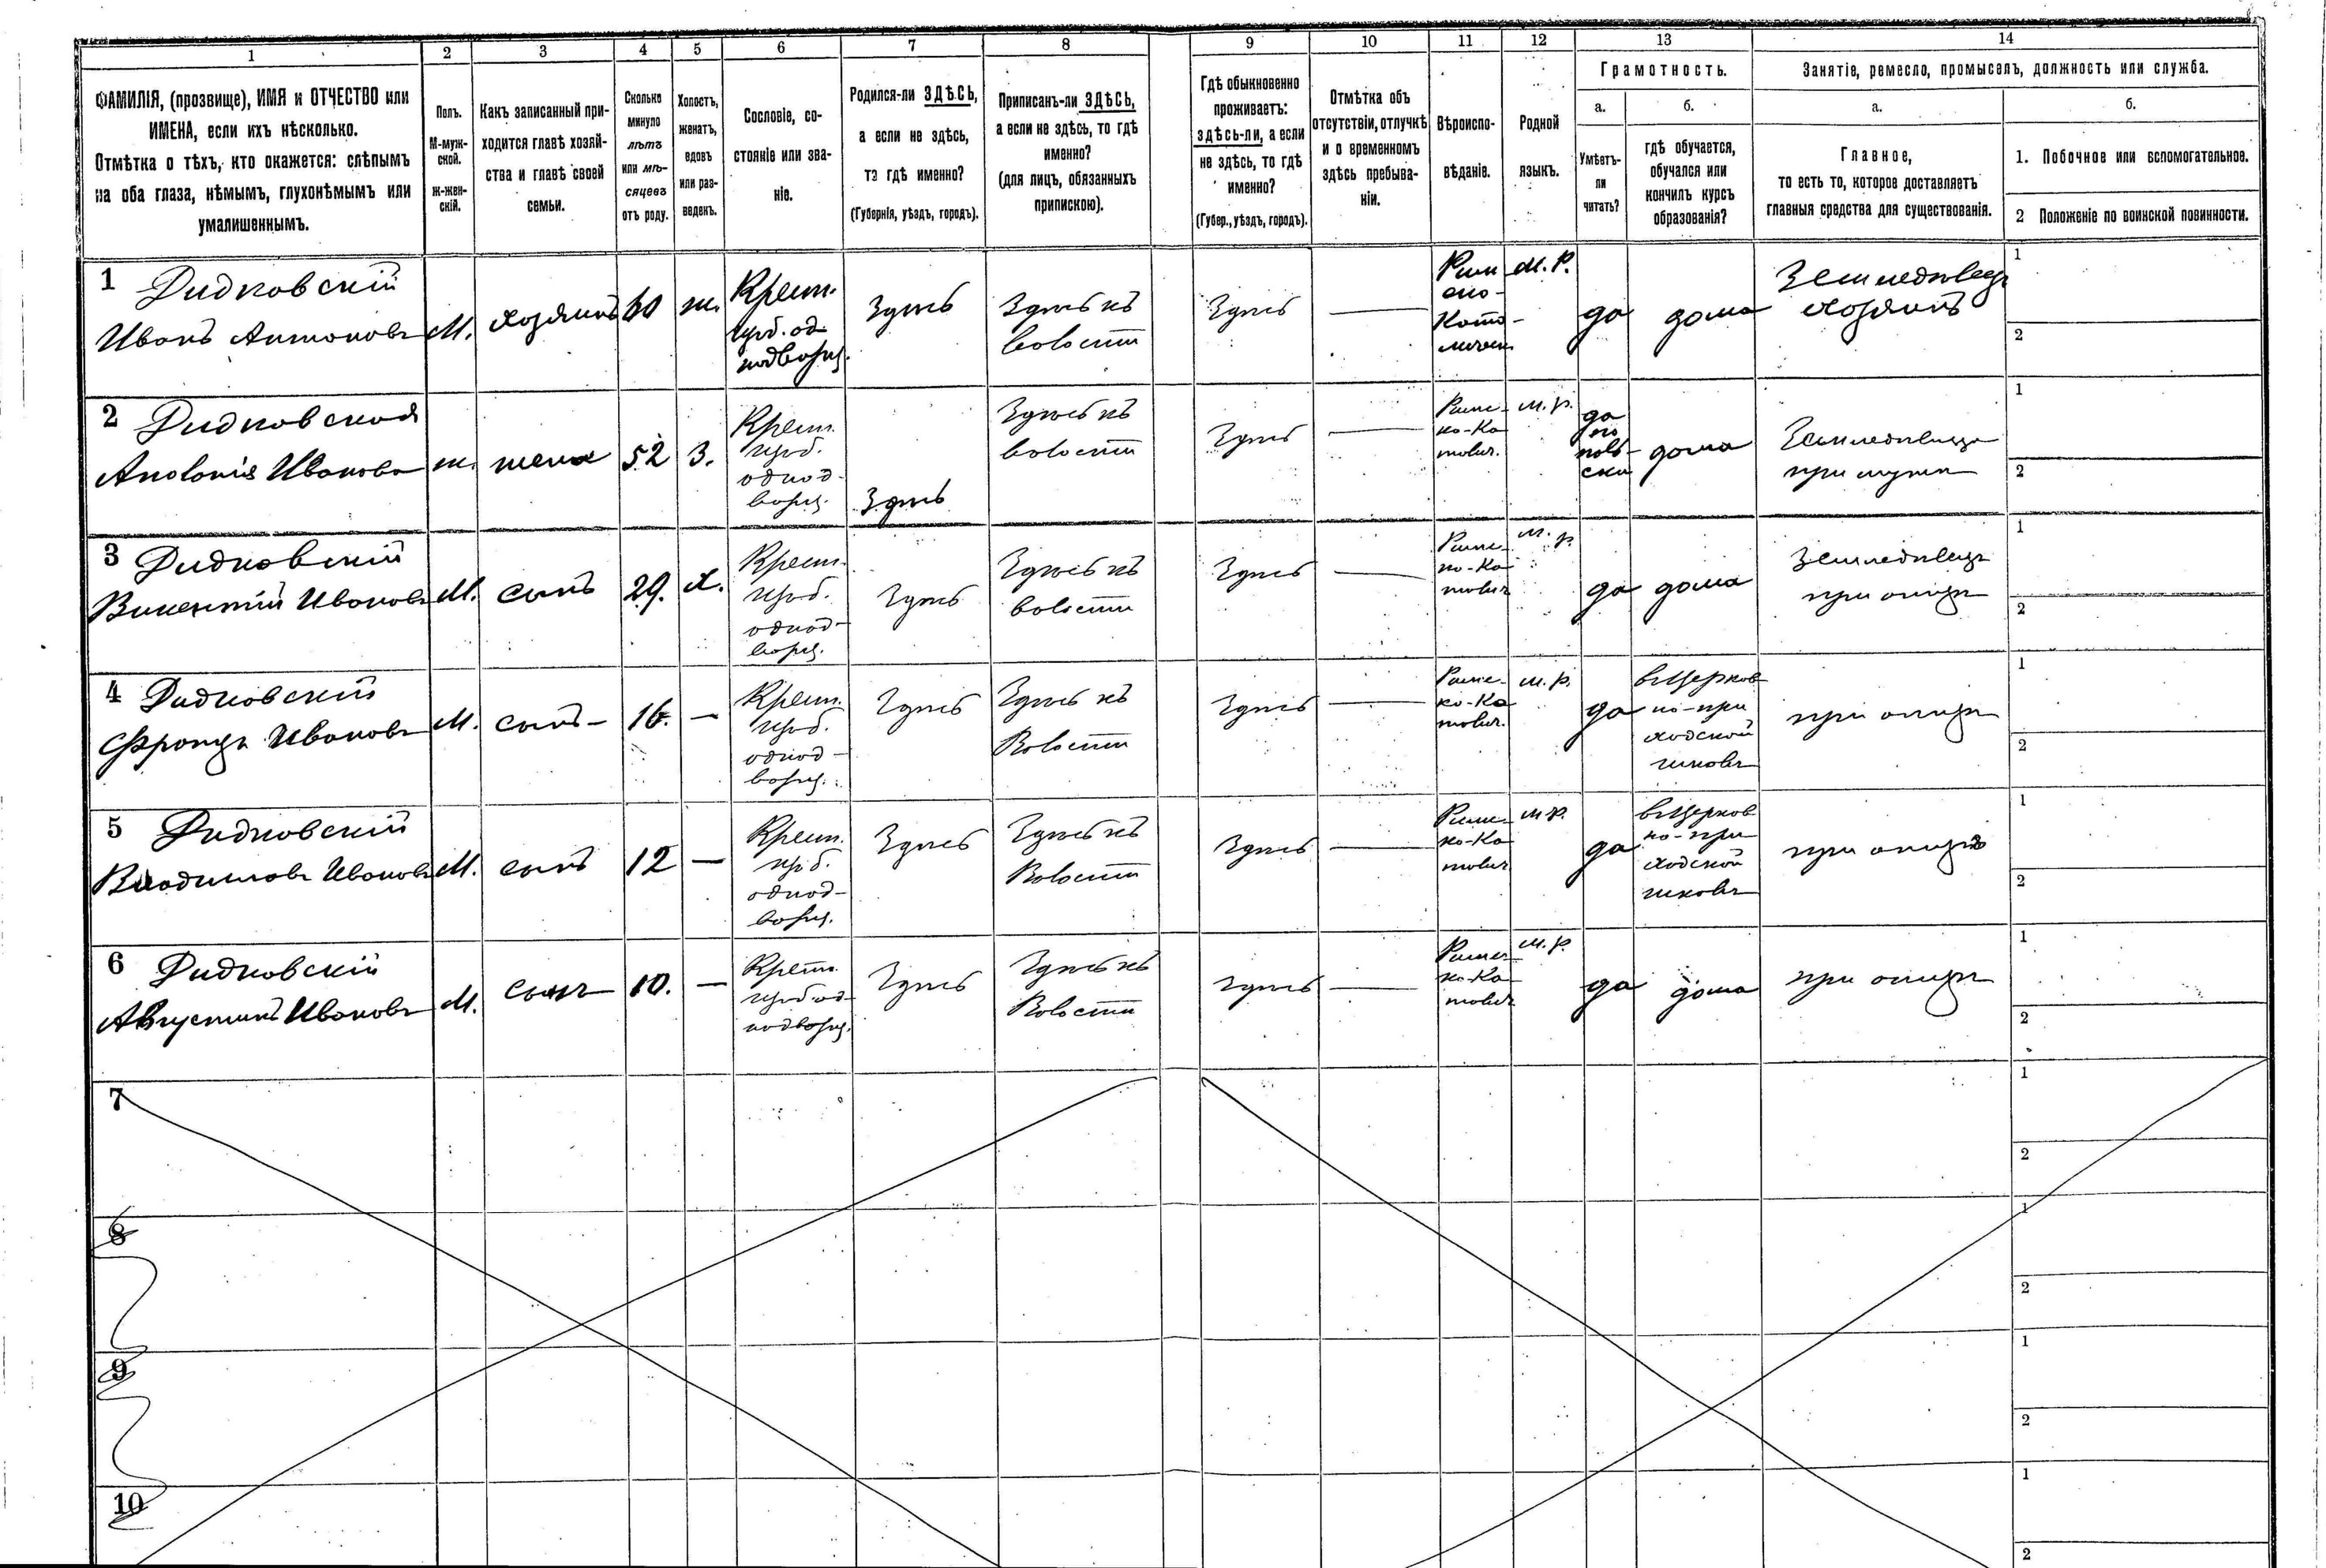 1 2 3 4 5 6 7 8 9 10 11 12 13 14
ФАМИЛІЯ, (прозвище), ИМЯ и ОТЧЕСТВО или
ИМЕНА, если ихъ нѣсколько.
Отмѣтка о тѣхъ, кто окажется: слѣпымъ
на оба глаза, нѣмымъ, глухонѣмымъ или
умалишеннымъ.
Полъ.
М-муж-
ской.
ж-жен-
скій.
Какъ записанный при-
ходится главѣ хозяй-
ства и главѣ своей
семьи.
Сколько
минуло
лѣтъ
или мѣ-
сяцевъ
отъ роду.
Холостъ,
женатъ,
вдовъ
или раз-
веденъ.
Сословіе, со-
стояніе или зва-
ніе.
Родился-ли ЗДѢСЬ,
а если не здѣсь,
то гдѣ именно?
(Губернія, уѣздъ, городъ).
Приписанъ-ли ЗДѢСЬ,
а если не здѣсь, то гдѣ
именно?
(для лицъ, обязанныхъ
припискою).
Гдѣ обыкновенно
проживаетъ:
здѣсь-ли, а если
не здѣсь, то гдѣ
именно?
(Губер., уѣздъ, городъ).
Отмѣтка объ
отсутствіи, отлучкѣ
и о временномъ
здѣсь пребыва-
ніи.
Вѣроиспо-
вѣданіе.
Родной
языкъ.
Грамотность.
а.
Умѣетъ-
ли
читать?
б.
гдѣ обучается,
обучался или
кончилъ курсъ
образованія?
Занятіе, ремесло, промыселъ, должность или служба.
а.
Главное,
то есть то, которое доставляетъ
главныя средства для существованія.
б.
1. Побочное или вспомогательное.
2 Положеніе по воинской повинности.
1 Дидковскій
Иванъ Антоновъ
М.
хозяинъ
60
ж.
Крест.
изъ б. од
нодворц.
Здѣсь
Здѣсь къ
волости
Здѣсь
—
Рим
ско-
Като-
лическ
М. Р.
да
дома
Земледѣлец
хозяинъ
1
2
2 Дидковская
Аполонія Иванова
ж.
жена
52
З.
Крест.
изъ б.
однод-
ворц.
Здѣсь
Здѣсь къ
волости
Здѣсь
—
Римс-
ко-Ка
толич.
м. р.
да
по
поль-
ски
дома
Земледѣлица
при мужѣ
1
2
3 Дидковскій
Викентій Ивановъ
М.
сынъ
29.
Х.
Крест.
изъ б.
однод-
ворц.
Здѣсь
Здѣсь къ
волости
Здѣсь
—
Римс-
ко-Ка
толич
м. р.
да
дома
Земледѣлец
при отцѣ
1
2
4 Дидковскій
Францъ Ивановъ
М.
сынъ-
16.
—
Крест.
изъ б.
однод-
ворц.
Здѣсь
Здѣсь къ
Волости
Здѣсь
—
Римс-
ко-Ка
толич.
м. р.
да
въ Церков
но-при
ходской
школѣ
при отцѣ
1
2
5 Дидковскій
Владиславъ Ивановъ
М.
сынъ
12
—
Крест.
изъ б.
однод-
ворц.
Здѣсь
Здѣсь къ
Волости
Здѣсь
—
Римс-
ко-Ка
толич
м. р.
да
въ Церков
но-при
ходской
школѣ
при отцѣ
1
2
6 Дидковскій
Августинъ Ивановъ
М.
сынъ
10.
—
Крест.
изъ б. од-
нодворц.
Здѣсь
Здѣсь къ
Волости
Здѣсь
—
Римс-
ко-Ка
толич
м. р.
да
дома
при отцѣ
1
2
7
1
2
8
1
2
9
1
2
10
1
2